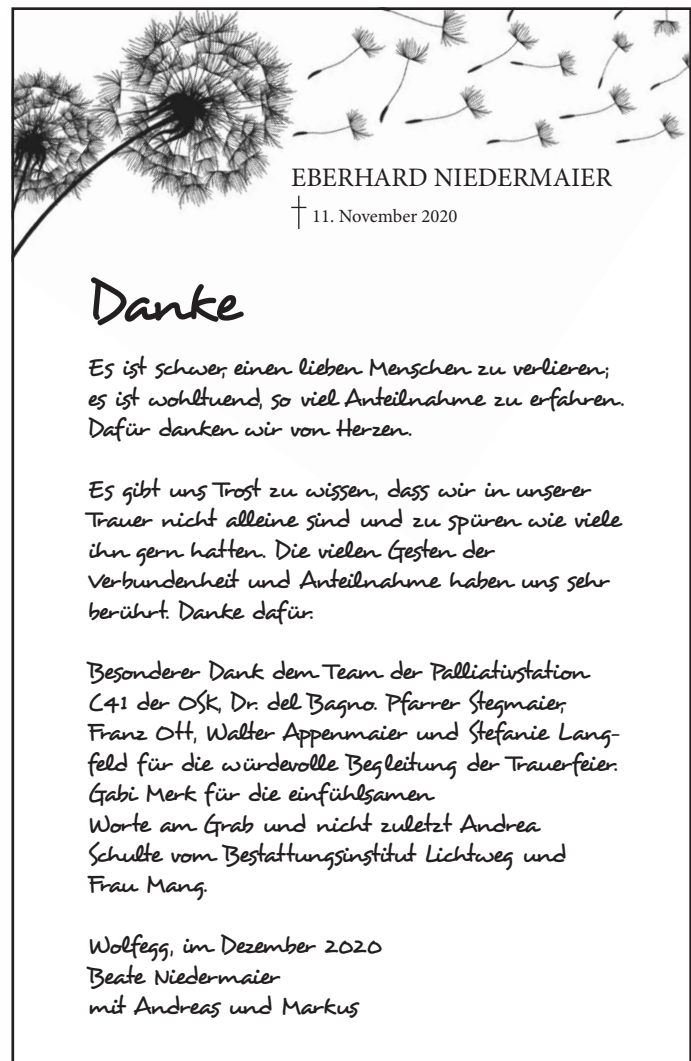 EBERHARD NIEDERMAIER
† 11. November 2020
Danke
Es ist schwer, einen lieben Menschen zu verlieren;
es ist wohltuend, so viel Anteilnahme zu erfahren.
Dafür danken wir von Herzen.
Es gibt uns Trost zu wissen, dass wir in unserer
Trauer nicht alleine sind und zu spüren wie viele
ihn gern hatten. Die vielen Gesten der
Verbundenheit und Anteilnahme haben uns sehr
berührt. Danke dafür.
Besonderer Dank dem Team der Palliativstation
C41 der OSK, Dr. del Bagno. Pfarrer Stegmaier,
Franz Ott, Walter Appenmaier und Stefanie Lang-
feld für die würdevolle Begleitung der Trauerfeier.
Gabi Merk für die einfühlsamen
Worte am Grab und nicht zuletzt Andrea
Schulte vom Bestattungsinstitut Lichtweg und
Frau Mang.
Wolfegg, im Dezember 2020
Beate Niedermaier
mit Andreas und Markus